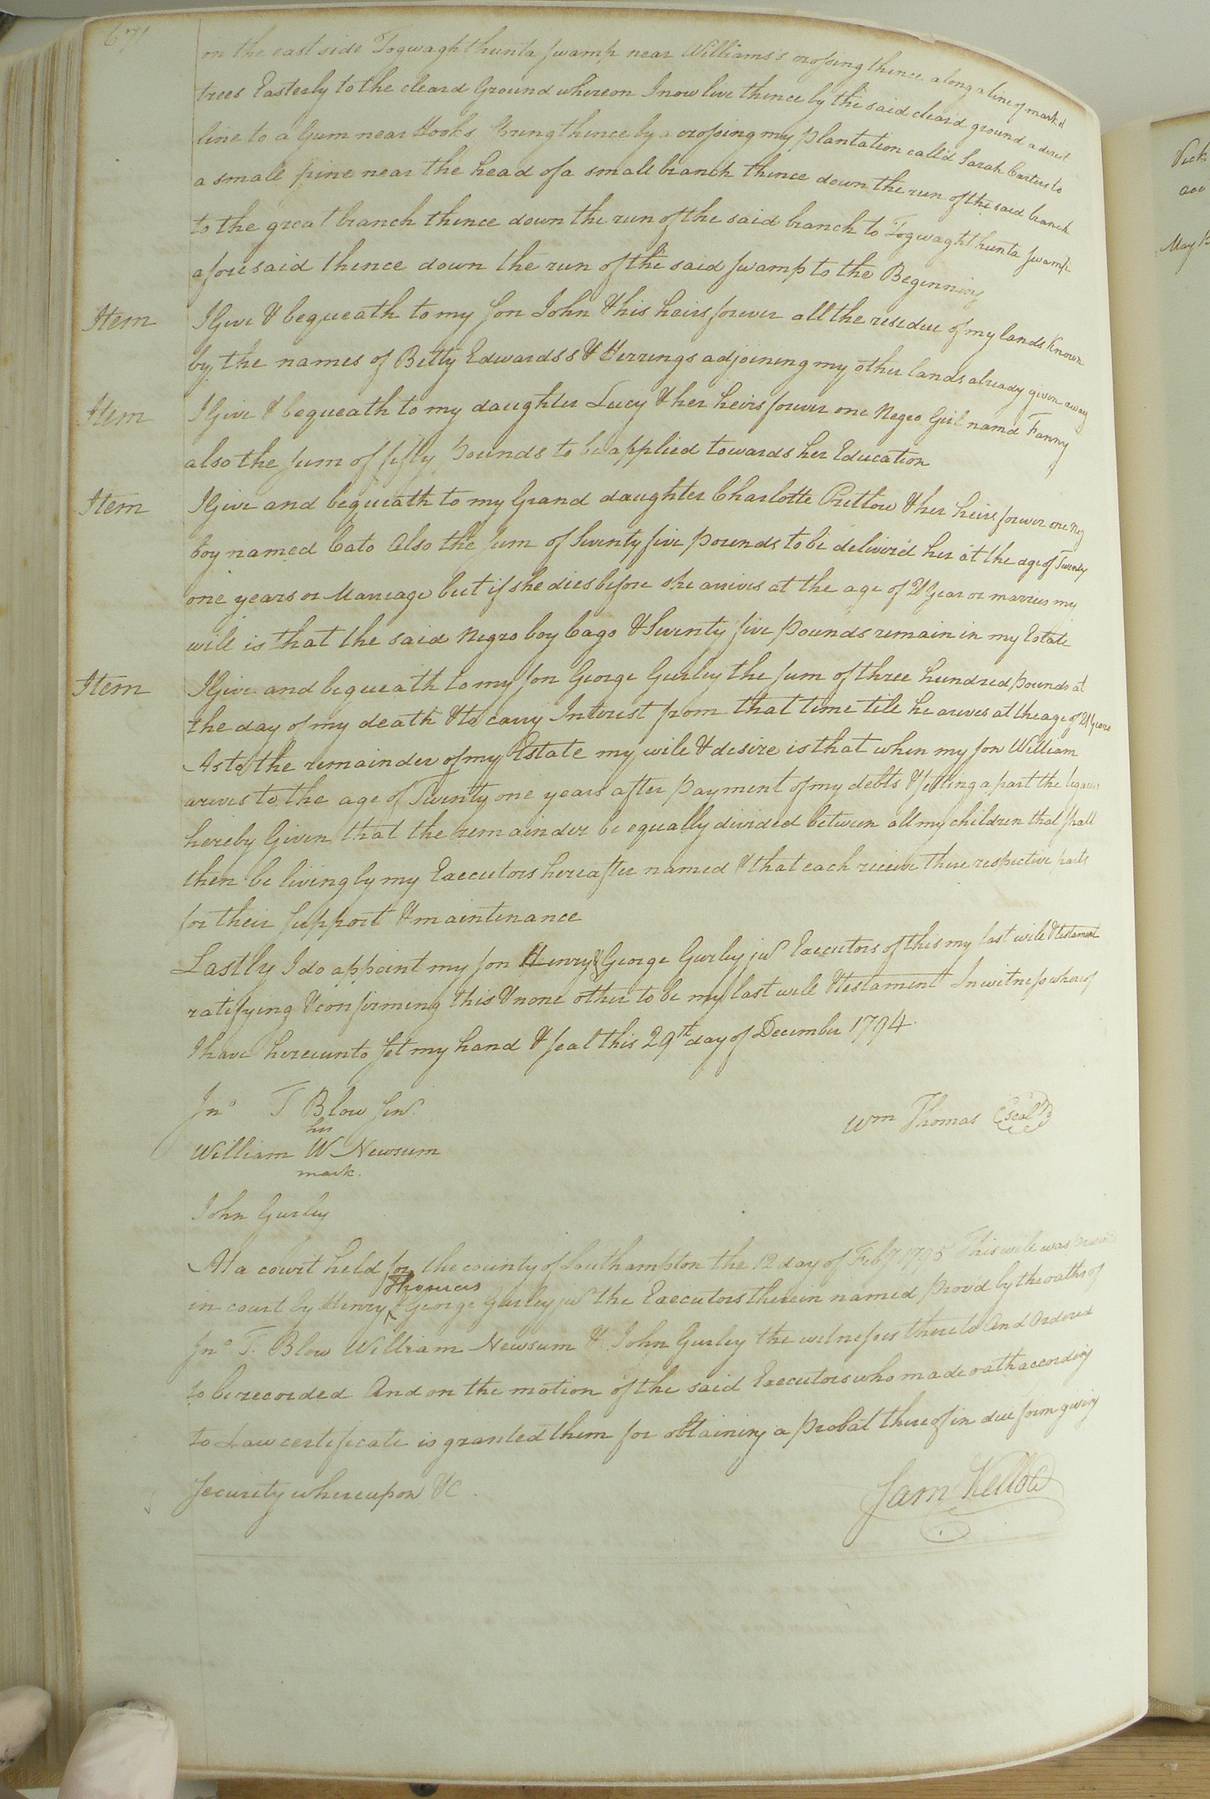 671
on the east side Togwaghthunta swamp near Williams's crossing thence along a line of mark'd
trees Easterly to the cleard Ground whereon I now live thence by the said cleard ground a direct
line to a Gum near Hooks Spring thence by a crossing my plantation call'd Sarah Carters to
a small pine near the head of a small branch thence down the run of the said branch
to the great branch thence down the run of the said branch to Togwaghthunta swamp
aforesaid thence down the run of the said swamp to the Beginning
Item I Give & bequeath to my son John & his heirs forever all the residue of my lands known
by the names of Betty Edwards's & Herrings adjoining my other lands already given away
Item I Give & bequeath to my daughter Lucy & her heirs forever one Negro Girl namd Fanny
also the sum of fifty Pounds to be applied towards her Education
Item I Give and bequeath to my Grand daughter Charlotte Pretlow & her heirs forever one Neg
boy named Cato Also the sum of Seventy five pounds to be deliver'd her at the age of Twenty
one years or Marriage but if she dies before she arrives at the age of 21 Year or marries my
will is that the said Negro boy Cago & Seventy five pounds remain in my Estate
Item I Give and bequeath to my son George Gurley the sum of three hundred pounds at
the day of my death & to carry Interest from that time till he arives at the age of 21 years
As to the remainder of my Estate my will & desire is that when my son William
arives to the age of Twenty one years after payment of my debts & setting apart the legacies
hereby Given that the remainder be equally divided between all my children that shall
then be living by my Executors hereafter named & that each receive there respective parts
for their support & maintenance
Lastly I do appoint my son Henry & George Gurley jur Executors of this my last will & testament
ratifying & confirming this & none other to be my last will & testament In witness whereof
I have hereunto set my hand & seal this 29th day of December 1794.
Jno T Blow Senr
Wm Thomas Seal
his
William W Newsum
mark.
John Gurley
At a court held for the county of Southampton the 12 day of Feby 1795 This will was
Thomas
in court by Henry & George Gurley jur the Executors therein named provd by the oaths of
Jno T. Blow William Newsum & John Gurley the witnesses thereto And Ordered
to be recorded And on the motion of the said Executors who made oath according
to Law certificate is granted them for obtaining a probat thereof in due form giving
security whereupon &c.
Sam Kello
May